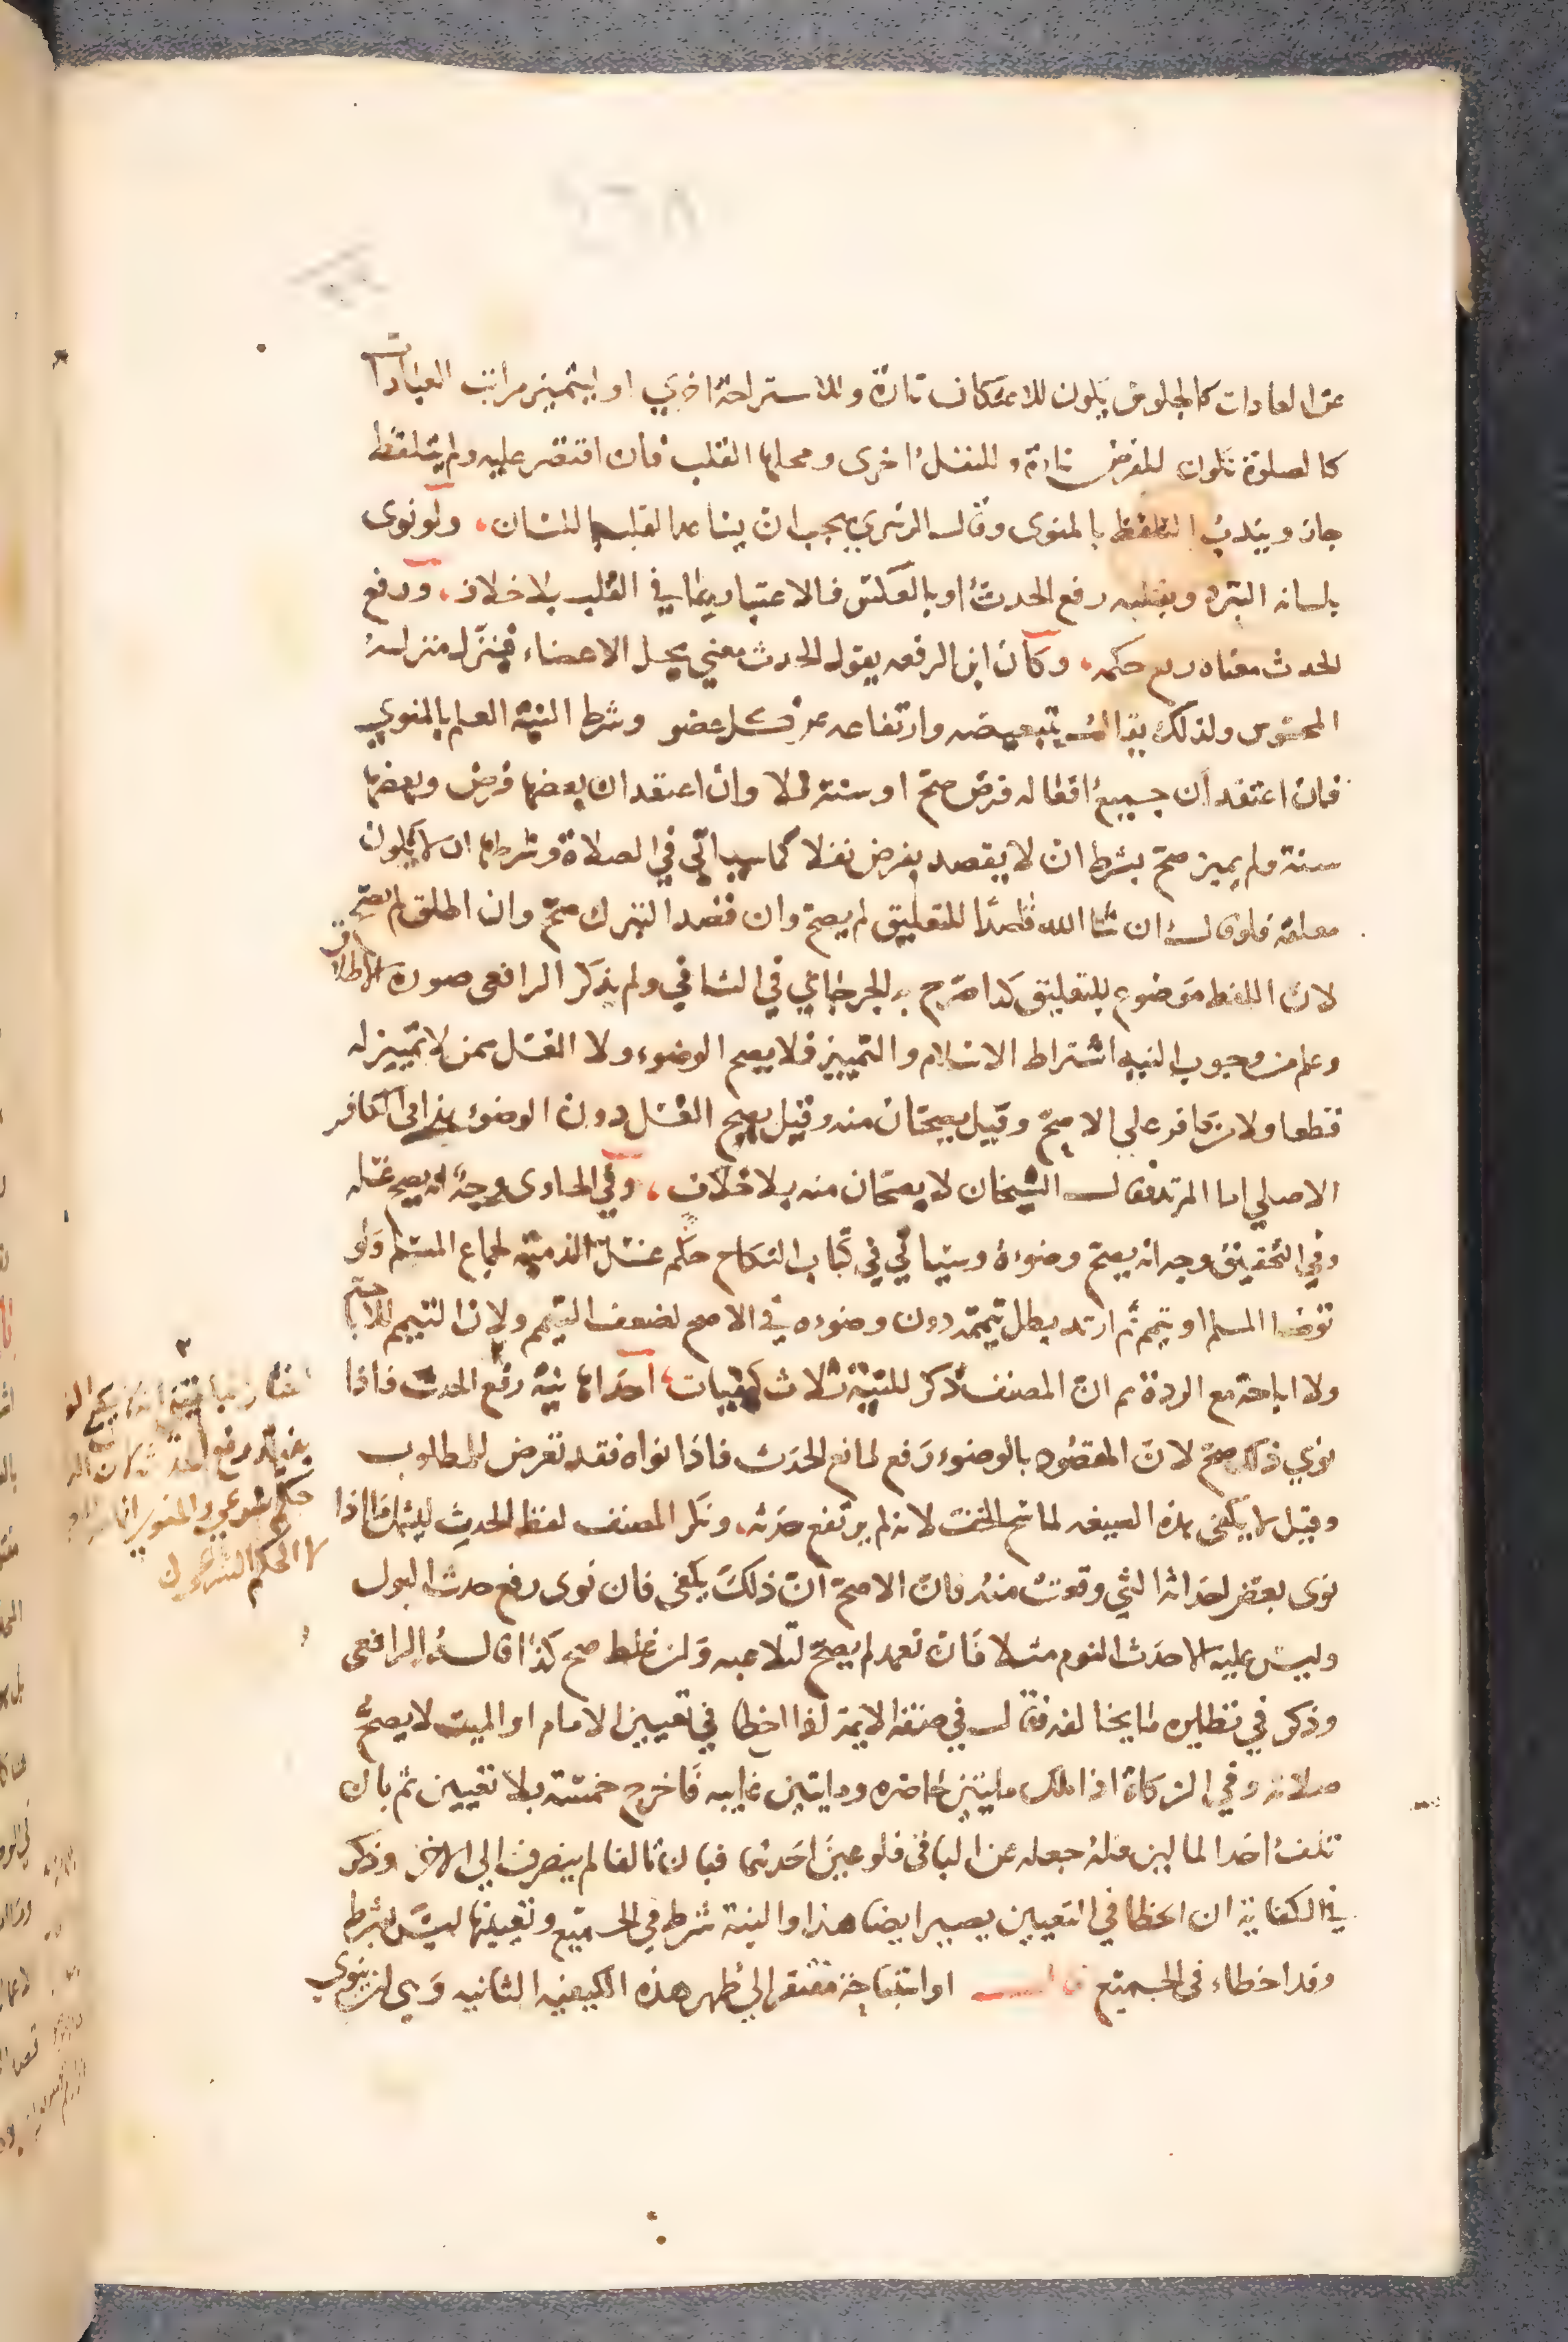 عن العادات كالجلوس يكون للاعتكاف تارة وللاستراحة اخري او ليتميز مراتب العبادات
كالصلوة تكون للفرض تارة وللنفل اخرى ومحلها القلب فان اقتصر عليه ولم يتلفظ
جاز ويندب التلفظ بالمنوى وقال الزبيري يجب ان يساعد القلب اللسان، ولو نوى
بلسانه التبرد وبقلبه رفع الحدث او بالعكس فالاعتبار بما في القلب بلا خلاف، ورفع
الحدث معناه رفع حكمه، وكان ابن الرفعه يقول الحدث معني يحل الاعضاء فينزل منزلة
المحسوس ولذلك يقال بتبعيضه وارتفاعه عن كل عضو وشرط النية العلم بالمنوي
فان اعتقد ان جميع افعاله فرض صح او سنة فلا وان اعتقد ان بعضها فرض وبعضها
سنة ولم يميز صح بشرط ان لا يقصد بفرض نفلا كما سياتي في الصلاة وشرطها ان لا يكون
معلقة فلو قال ان شا الله قاصدًا للتعليق لم يصح وان قصد التبرك صح وان اطلق لم يصح
لان اللفظ موضوع للتعليق كذا صرح به الجرجاني في الشافي ولم يذكر الرافعي صورة الاطلاق
وعلم من وجوب النيه اشتراط الاسلام والتمييز فلا يصح الوضوء ولا الغسل ممن لا تمييز له
قطعا ولا من كافر علي الاصح وقيل يصحان منه وقيل يصح الغسل دون الوضوء هذا في الكافر
الاصلي اما المرتد فقال الشيخان لا يصحان منه بلا خلاف، وفي الحاوى وجه انه يصح غسله
وفي التحقيق وجه انه يصح وضوءه وسياتي في كتاب النكاح حكم غسل الذمية لجماع المسلم ولو
توضا المسلم او تيمم ثم ارتد بطل تيممه دون وضوءه في الاصح لضعف التيمم ولان التيمم للاباحة
ولا اباحة مع الردة ثم ان المصنف ذكر للنية ثلاث كيفيات احداها نية رفع الحدث فاذا
نوي ذلك صح لان المقصود بالوضوء رفع لمانع الحدث فاذا نواه فقد تعرض للمطلوب
وقيل لا يكفي بهذه الصيغه لماسح الخف لانه لم يرتفع حدثه، ونكر المصنف لفظ الحدث ليشمل ما اذا
نوى بعض احداثه التي وقعت منه فان الاصح ان ذلك يكفي فان نوى رفع حدث البول
وليس عليه الا حدث النوم مثلا فان تعمد لم يصح لتلاعبه وان غلط صح كذا قاله الرافعي
وذكر في نظايره ما يخالفه فقال في صفة الايمة اذا اخطا في تعيين الامام او الميت لا يصح
صلاته وفي الزكاة اذا ملك مايتين حاضره ومايتين غايبه فاخرج خمسة بلا تعيين ثم بان
تلف احد المالين فله جعله عن الباقي فلو عين احدهما فبان تالفا لم ينصرف الي الاخر وذكر
في الكفاية ان الخطا في التعيين يصير ايضا هذا والنية شرط في الجميع وتعيينها ليس بشرط
وقد اخطاء في الجميع قال او استباحة مفتقر الي طهر هذه الكيفيه الثانيه وهي ان ينوي
حكم شرعي والمنوى انما
لا الحكم الشرعي